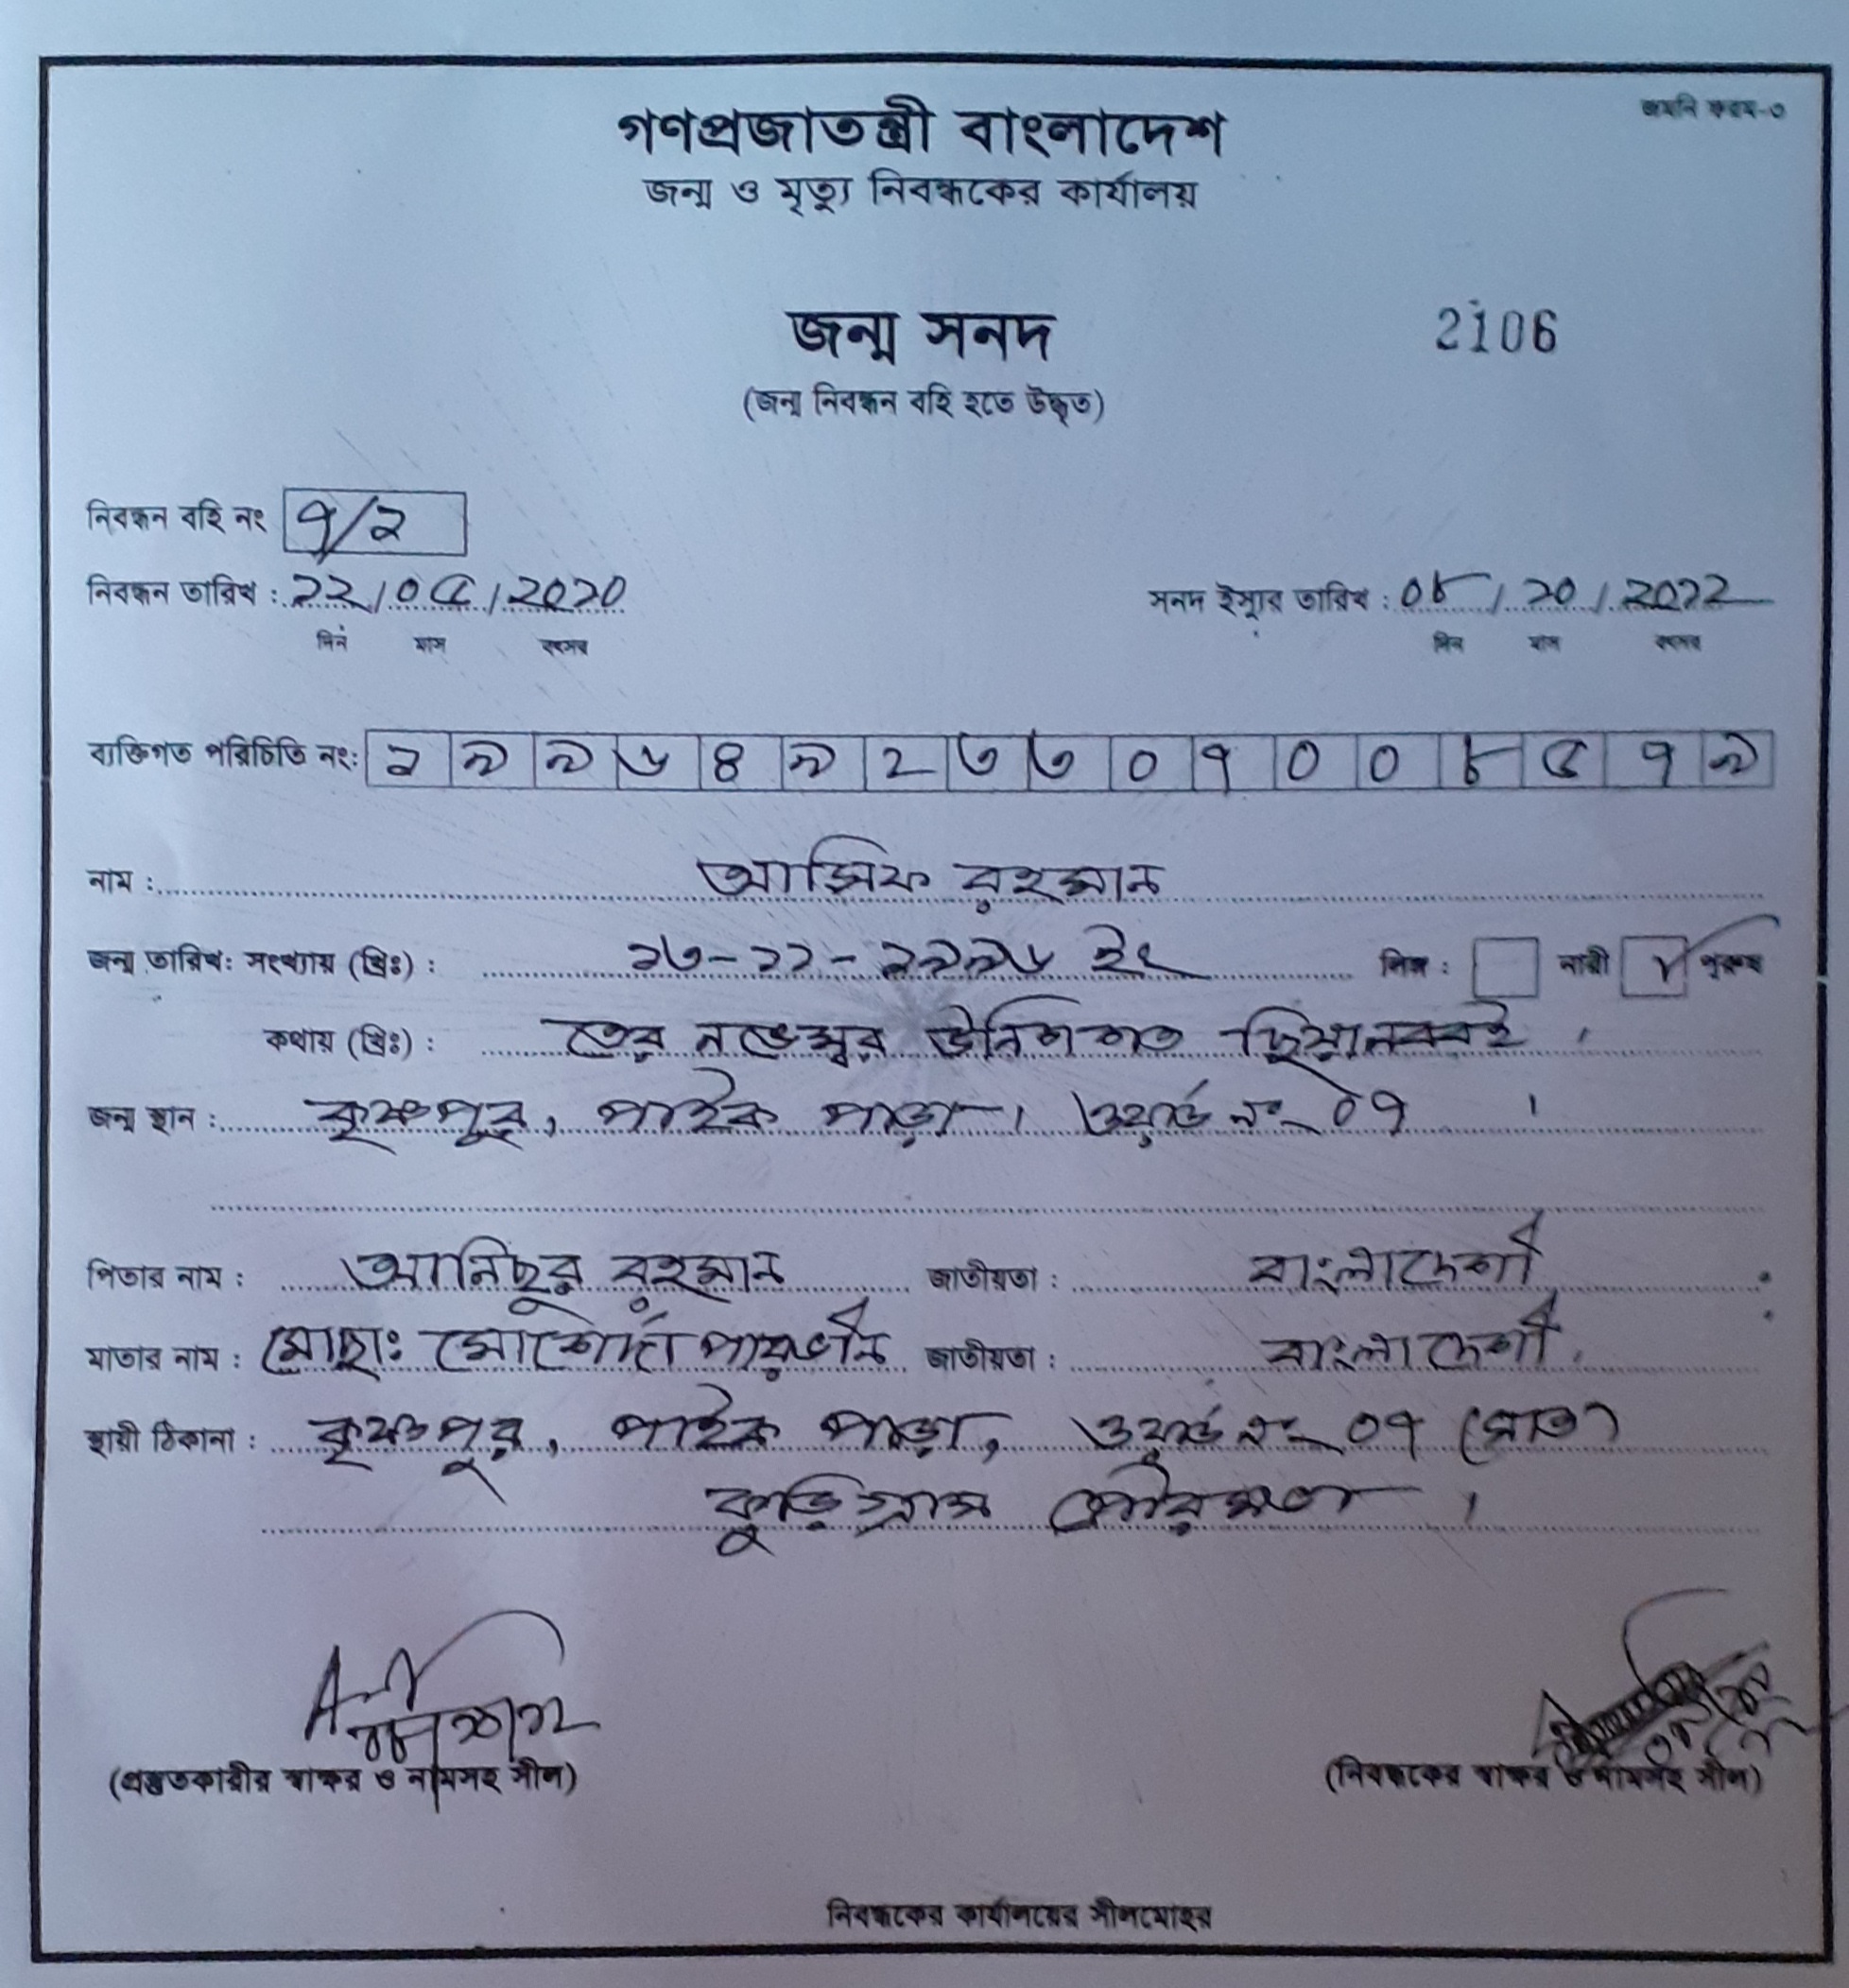 জমনি ফরম-৩
গণপ্রজাতন্ত্রী বাংলাদেশ
জন্ম ও মৃত্যু নিবন্ধকের কার্যালয়
জন্ম সনদ
2106
(জন্ম নিবন্ধন বহি হতে উদ্ধৃত)
নিবন্ধন বহি নং ৭/২
নিবন্ধন তারিখ : ১২/০৫/২০১০ সনদ ইস্যুর তারিখ : ০৮/১০/২০১২
দিন মাস বৎসর দিন মাস বৎসর
ব্যক্তিগত পরিচিতি নং: ১৯৯৬৪৯২৬৬০৭০০৮৫৭৯
নাম : আসিফ রহমান
জন্ম তারিখ: সংখ্যায় (খ্রিঃ) : ১৩-১১-১৯৯৬ ইং লিঙ্গ : নারী পুরুষ
কথায় (খ্রিঃ) : তের নভেম্বর উনিশশত ছিয়ানব্বই ।
জন্ম স্থান : কৃষ্ণপুর, পাইক পাড়া। ওয়ার্ড নং ০৭ ।
পিতার নাম : আনিছুর রহমান জাতীয়তা : বাংলাদেশী
মাতার নাম : মোছাঃ মোর্শেদা পারভীন জাতীয়তা : বাংলাদেশী
স্থায়ী ঠিকানা : কৃষ্ণপুর, পাইক পাড়া, ওয়ার্ড নং ০৭
কুড়িগ্রাম পৌরসভা ।
(প্রস্তুতকারীর স্বাক্ষর ও নামসহ সীল) (নিবন্ধকের স্বাক্ষর ও নামসহ সীল)
নিবন্ধকের কার্যালয়ের সীলমোহর